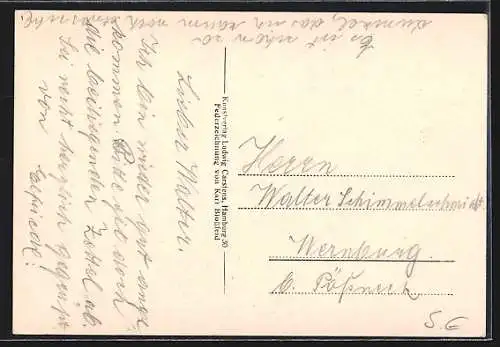 Lieber Walter.
Ich bin wieder gut ange-
kommen. Bitte gib doch
die beiliegenden Zettel ab.
Sei recht herzlich gegrüßt
von Elfriede!
Es ist schon so
dunkel, das ich kaum noch
Kunstverlag Ludwig Carstens, Hamburg 30
Federzeichnung von Karl Blogfeld
Herrn
Walter Schimmelschmidt
Wernburg.
b. Pößneck
S. E